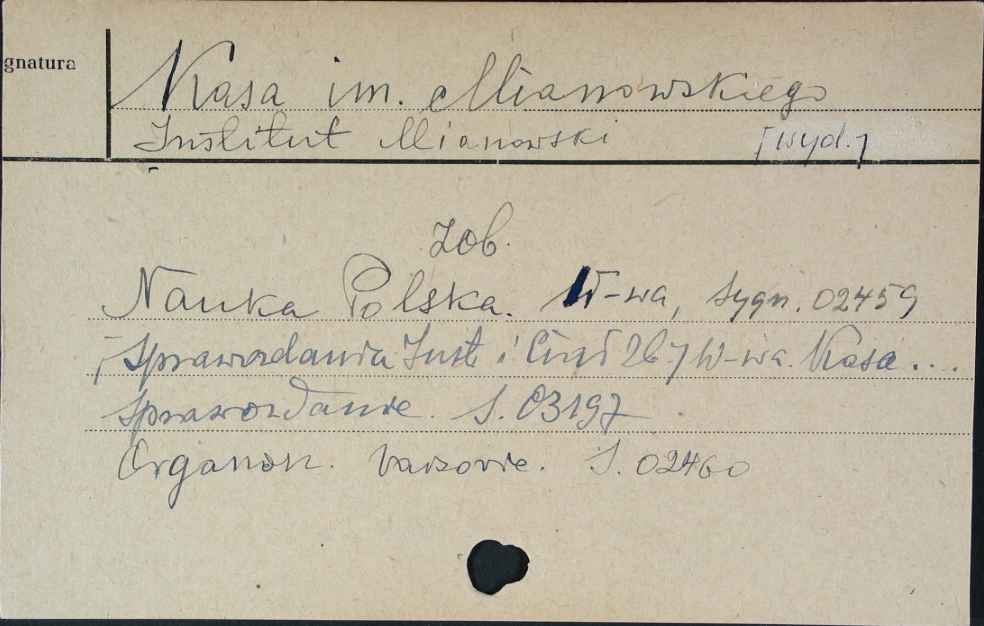 gnatura
Kasa im. Mianowskiego
Instytut Mianowski [wyd.]
Zob.
Nauka Polska. W-wa, sygn. 02459
[Sprawozdania Inst i Ciał ] W-wa. Kasa ...
Sprawozdanie. S. 03197
Organon. Varsovie. S. 02460